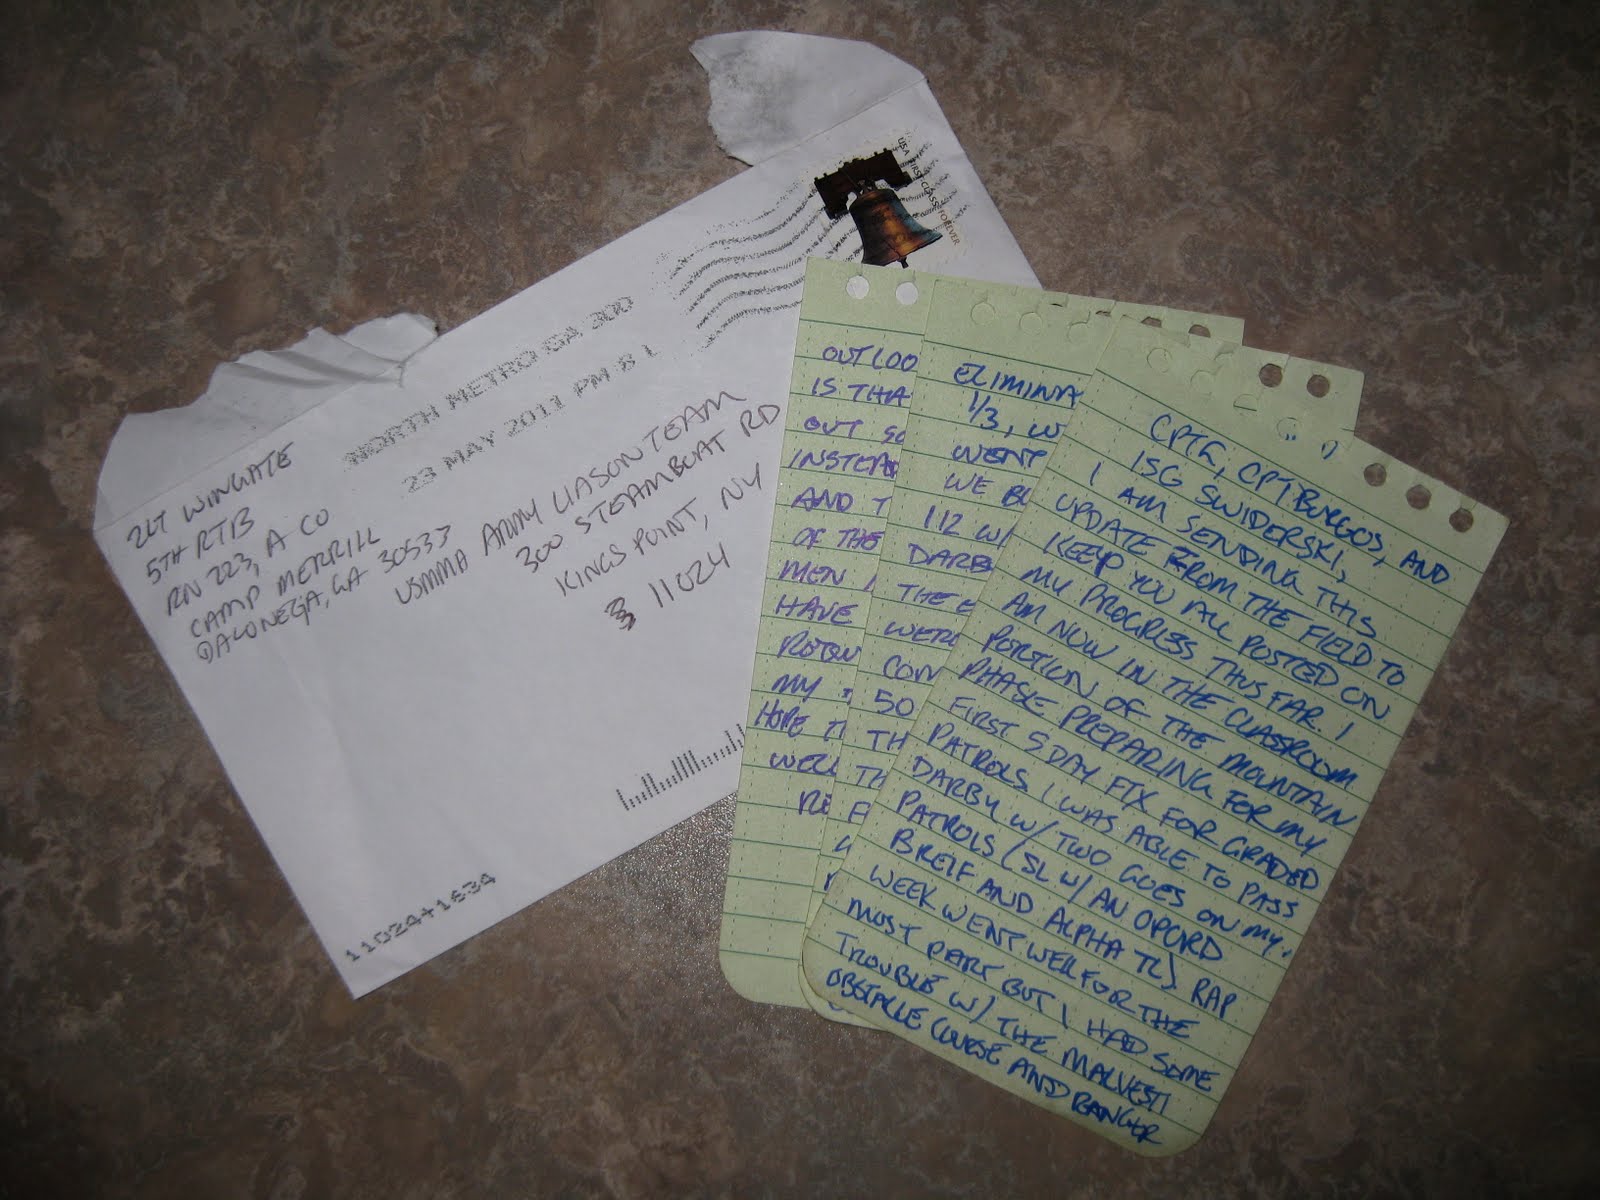 2LT WINGATE
5TH RTB
RN 223, A CO
CAMP MERRILL
DALONEGA, GA 30533
NORTH METRO GA 300
23 MAY 2011 PM 8 L
USA FIRST-CLASS FOREVER
USMMA ARMY LIASON TEAM
300 STEAMBOAT RD
KINGS POINT, NY
11024
11024+1634
OUTLOO
IS THA
OUT SO
INSTEAD
AND T
OF THE
MEN
HAVE
ROTW
MY
HOPE T
WELL
RE
ELIMINA
1/3, W
WENT
WE BU
112 W/
DARB
THE
WERE
COM
50
TH
TH
CPT G, CPT BURGOS, AND
1SG SWIDERSKI,
I AM SENDING THIS
UPDATE FROM THE FIELD TO
KEEP YOU ALL POSTED ON
MY PROGRESS THUS FAR. I
AM NOW IN THE CLASSROOM
PORTION OF THE MOUNTAIN
PHASE PREPARING FOR MY
FIRST 5 DAY FTX FOR GRADED
PATROLS. I WAS ABLE TO PASS
DARBY W/ TWO GOES ON MY
PATROLS (SL W/ AN OPORD
BREIF AND ALPHA TL) RAP
WEEK WENT WELL FOR THE
MOST PART BUT I HAD SOME
TROUBLE W/ THE MALVESTI
OBSTACLE COURSE AND RANGER